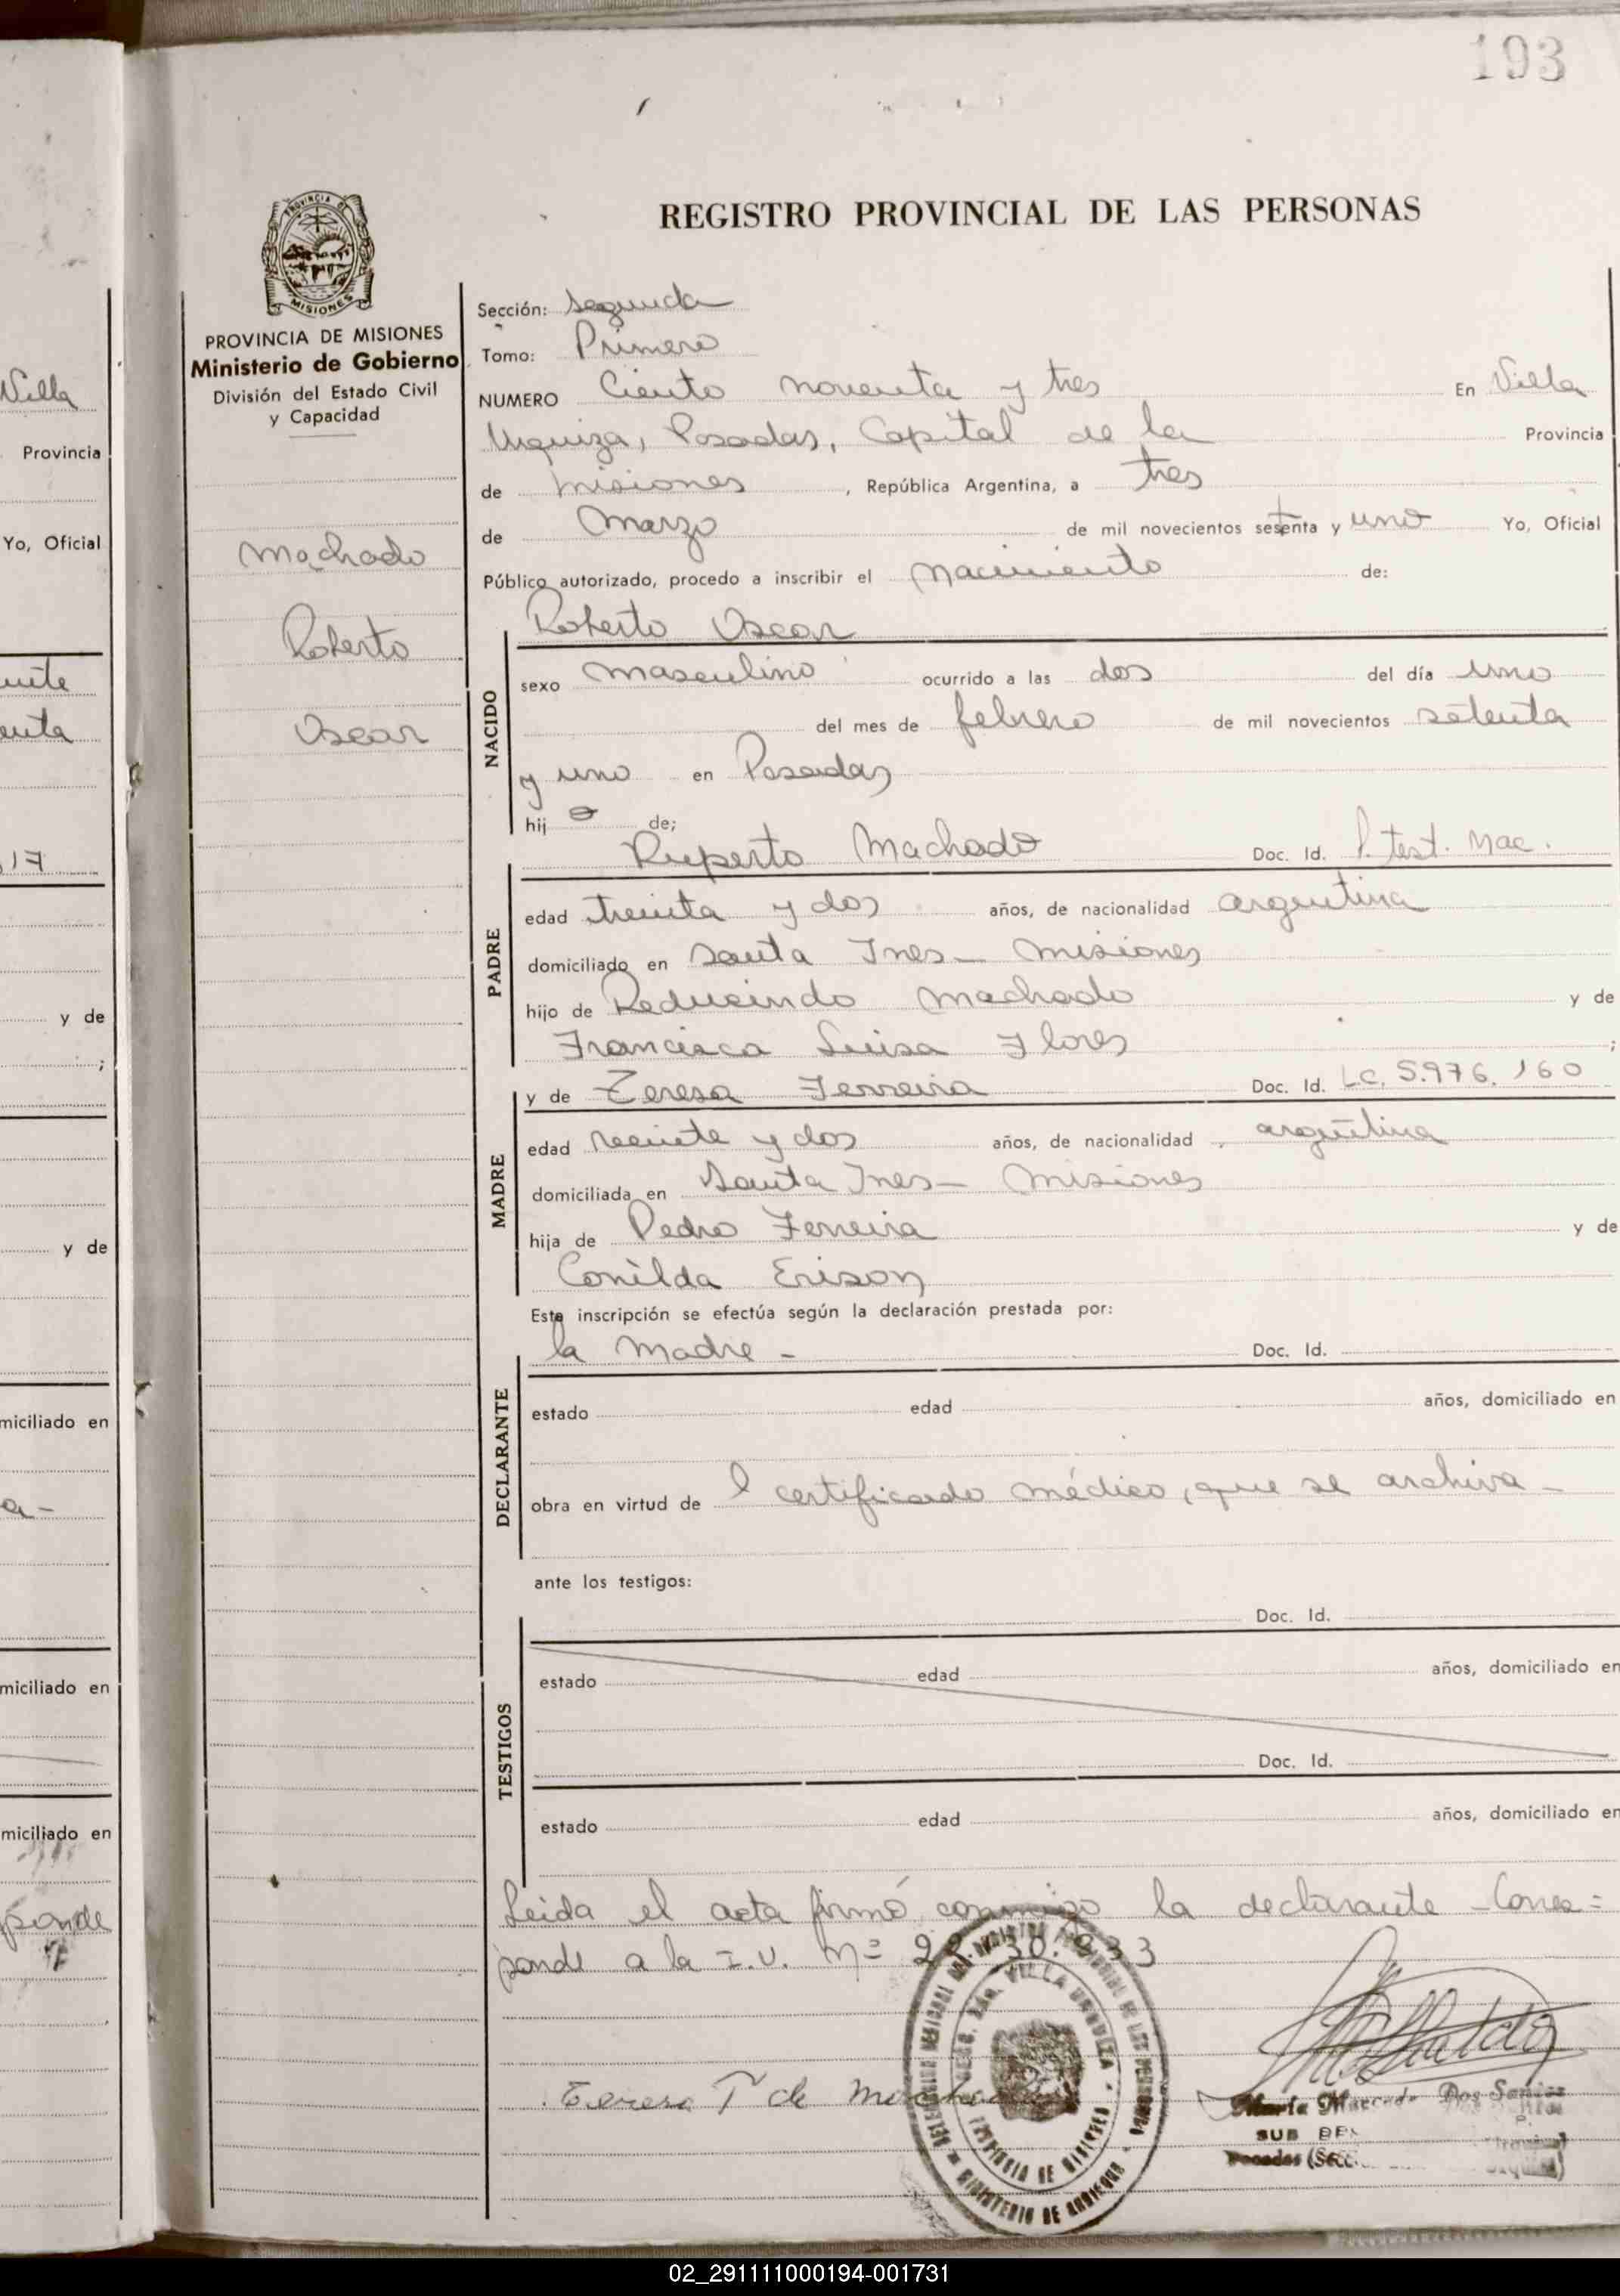 193
REGISTRO PROVINCIAL DE LAS PERSONAS
PROVINCIA DE
MISIONES
PROVINCIA DE MISIONES
Ministerio de Gobierno
División del Estado Civil
y Capacidad
Machado
Roberto
Oscar
Sección: Segunda
Tomo: Primero
NUMERO Ciento noventa y tres En Villa
Urquiza, Posadas, Capital de la Provincia
de Misiones, República Argentina, a tres
de Marzo de mil novecientos setenta y uno Yo, Oficial
Público autorizado, procedo a inscribir el nacimiento de:
Roberto Oscar
NACIDO
sexo masculino ocurrido a las dos del día uno
del mes de febrero de mil novecientos setenta
y uno en Posadas
hij o de;
Ruperto Machado Doc. Id. P. test. Mac.
PADRE
edad treinta y dos años, de nacionalidad argentina
domiciliado en Santa Ines - Misiones
hijo de Reducindo Machado y de
Francisca Luisa Flores ;
y de Teresa Ferreira Doc. Id. L.C. 5.976.160
MADRE
edad veinte y dos años, de nacionalidad argentina
domiciliada en Santa Ines - Misiones
hija de Pedro Ferreira y de
Conilda Erison
Esta inscripción se efectúa según la declaración prestada por:
la Madre - Doc. Id.
DECLARANTE
estado edad años, domiciliado en
obra en virtud de l certificado médico, que se archiva -
ante los testigos:
Doc. Id.
TESTIGOS
estado edad años, domiciliado en
Doc. Id.
estado edad años, domiciliado en
Leida el acta firmó conmigo la declarante - Corres=
ponde a la I.U. Nº
Teresa F de Machado
VILLA URQUIZA
PROVINCIA DE MISIONES
MINISTERIO DE GOBIERNO
Dos Santos
SUB
Posadas (Secc.
Villa
Provincia
Yo, Oficial
17
y de
;
y de
miciliado en
a-
miciliado en
miciliado en
ponde
02_291111000194-001731